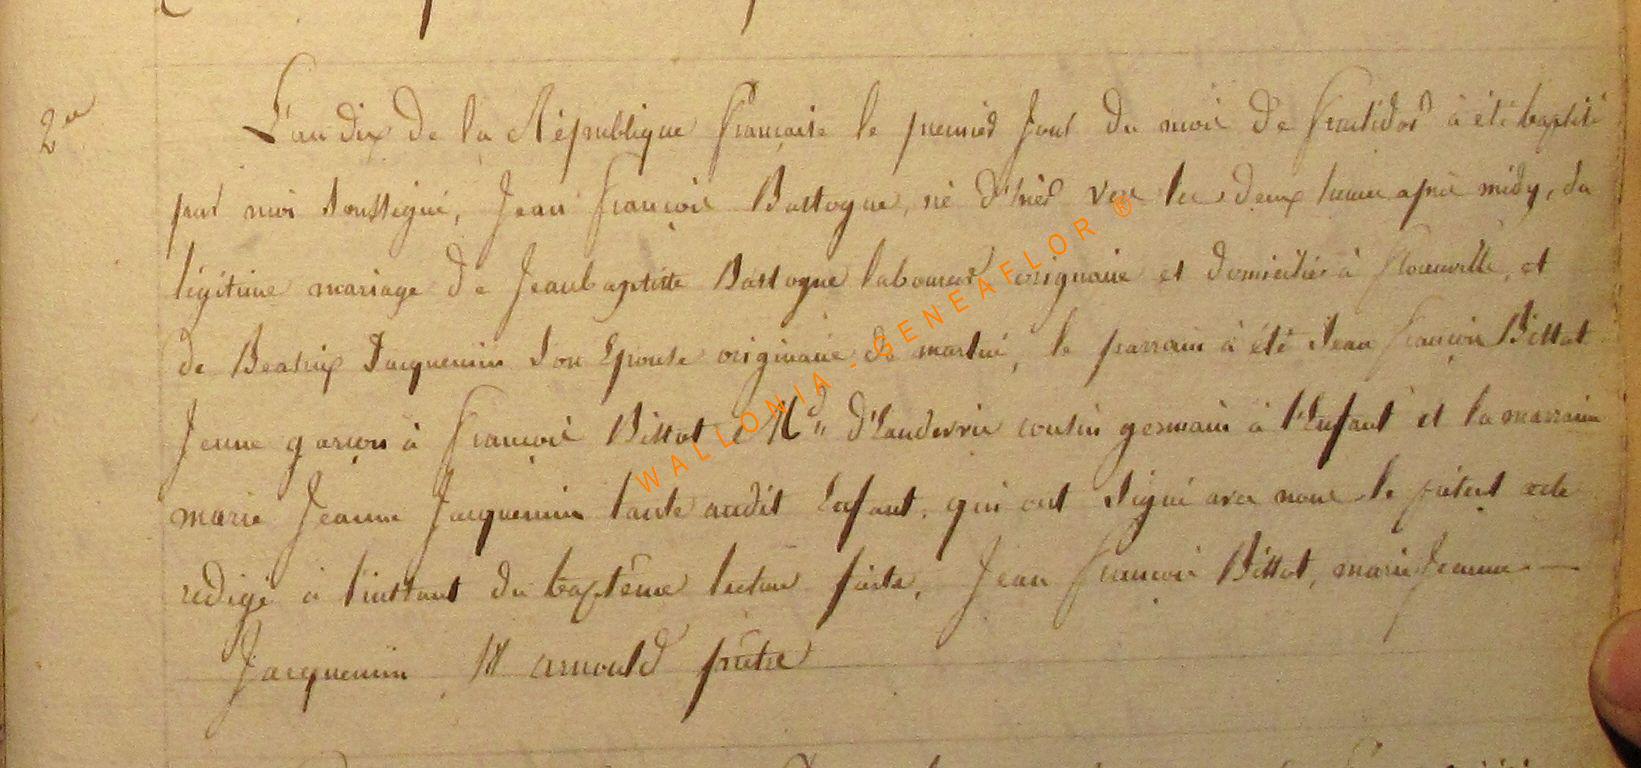 2e
L'an dix de la République française le premier Jour du mois de fructidor à été baptisé
par moi soussigné, Jean françois Bastogne, né d'hier vers les deux heures après midy, du
légitime mariage de Jeanbaptiste Bastogne laboureur originaire et domicilié à florenville, et
de Beatrix Jacquemin son Epouse originaire de martué, le parrain à été Jean françois Bissot
Jeune garçon à françois Bissot Md cousin germain à l'Enfant et la marraine
marie Jeanne Jacquemin tante audit Enfant, qui ont signé avec nous le présent acte
redigé à l'instant du baptême lecture faite, Jean françois Bissot, marie Jeanne
Jacquemin arnould prêtre
WALLONIA - GENEAFLOR ®